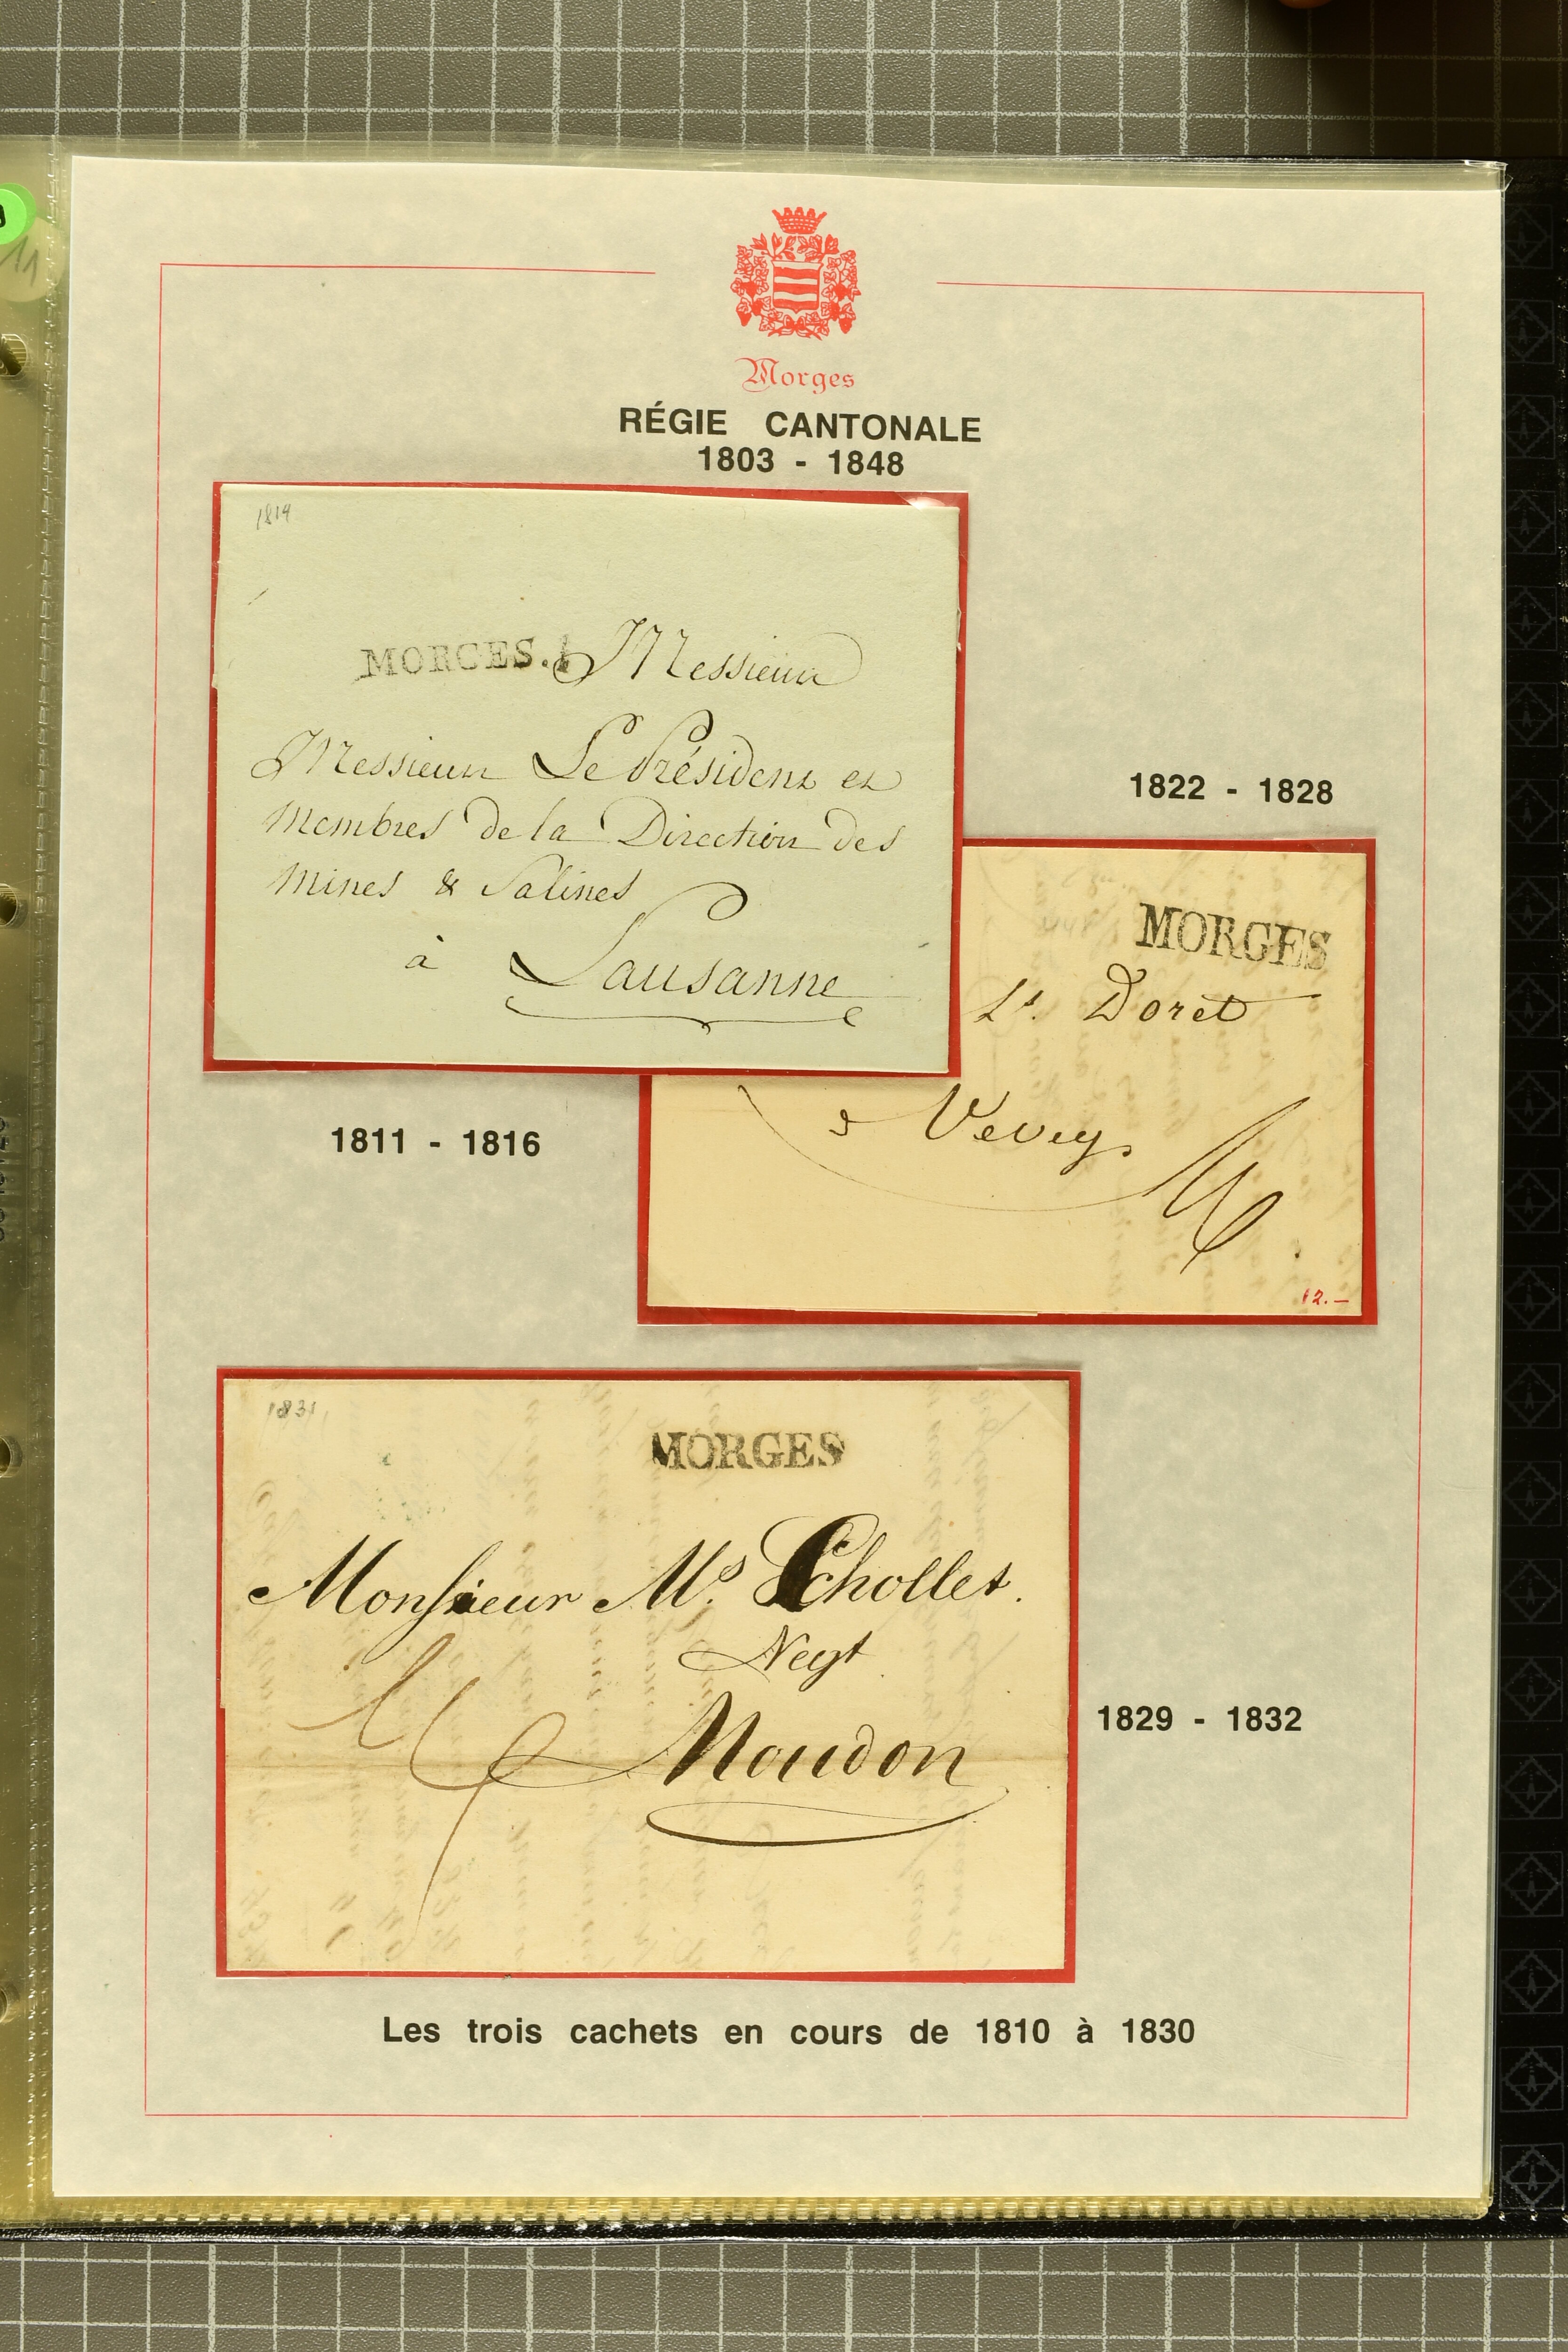 11
Morges
RÉGIE CANTONALE
1803 - 1848
1814
MORGES.
Messieurs
Messieurs Le Président et
Membres de la Direction des
Mines & Salines
à Lausanne
1822 - 1828
MORGES
Ls. Doret
à Vevey
12.—
1811 - 1816
1831
MORGES
Monsieur Ms. Schollet.
Negt
Moudon
1829 - 1832
Les trois cachets en cours de 1810 à 1830